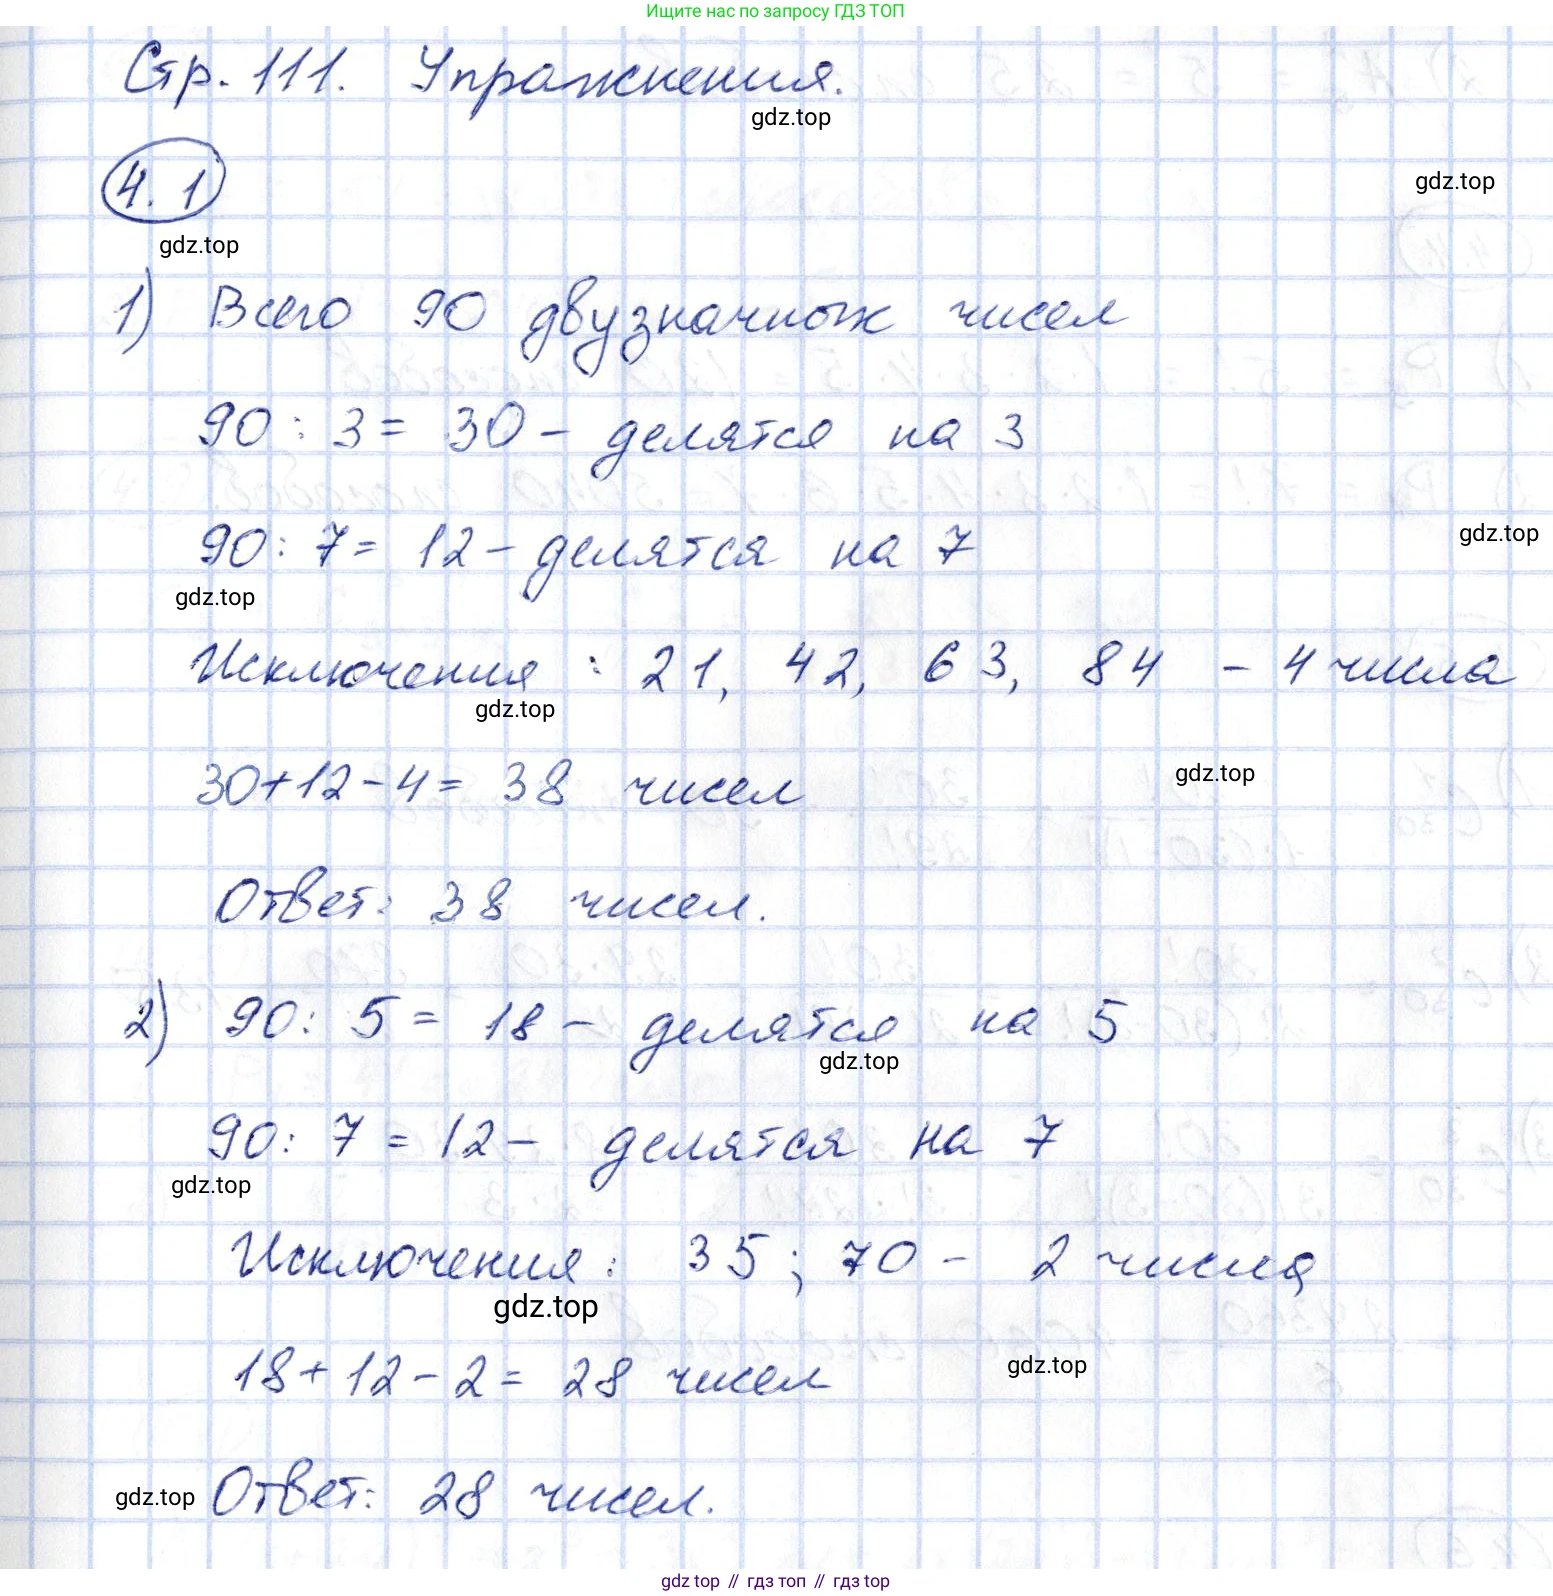 Ищите нас по запросу ГДЗ ТОП
Стр. 111. Упражнения.
gdz.top
4.1
gdz.top
gdz.top
1) Всего 90 двузначных чисел
90 : 3 = 30 - делятся на 3
90 : 7 = 12 - делятся на 7
gdz.top
gdz.top
Исключения : 21, 42, 63, 84 - 4 числа
gdz.top
30+12-4= 38 чисел
gdz.top
Ответ: 38 чисел.
2) 90 : 5 = 18 - делятся на 5
gdz.top
90 : 7 = 12 - делятся на 7
gdz.top
Исключения : 35 ; 70 - 2 числа
gdz.top
18+12-2= 28 чисел
gdz.top
gdz.top
Ответ: 28 чисел.
gdz top // гдз топ // гдз top